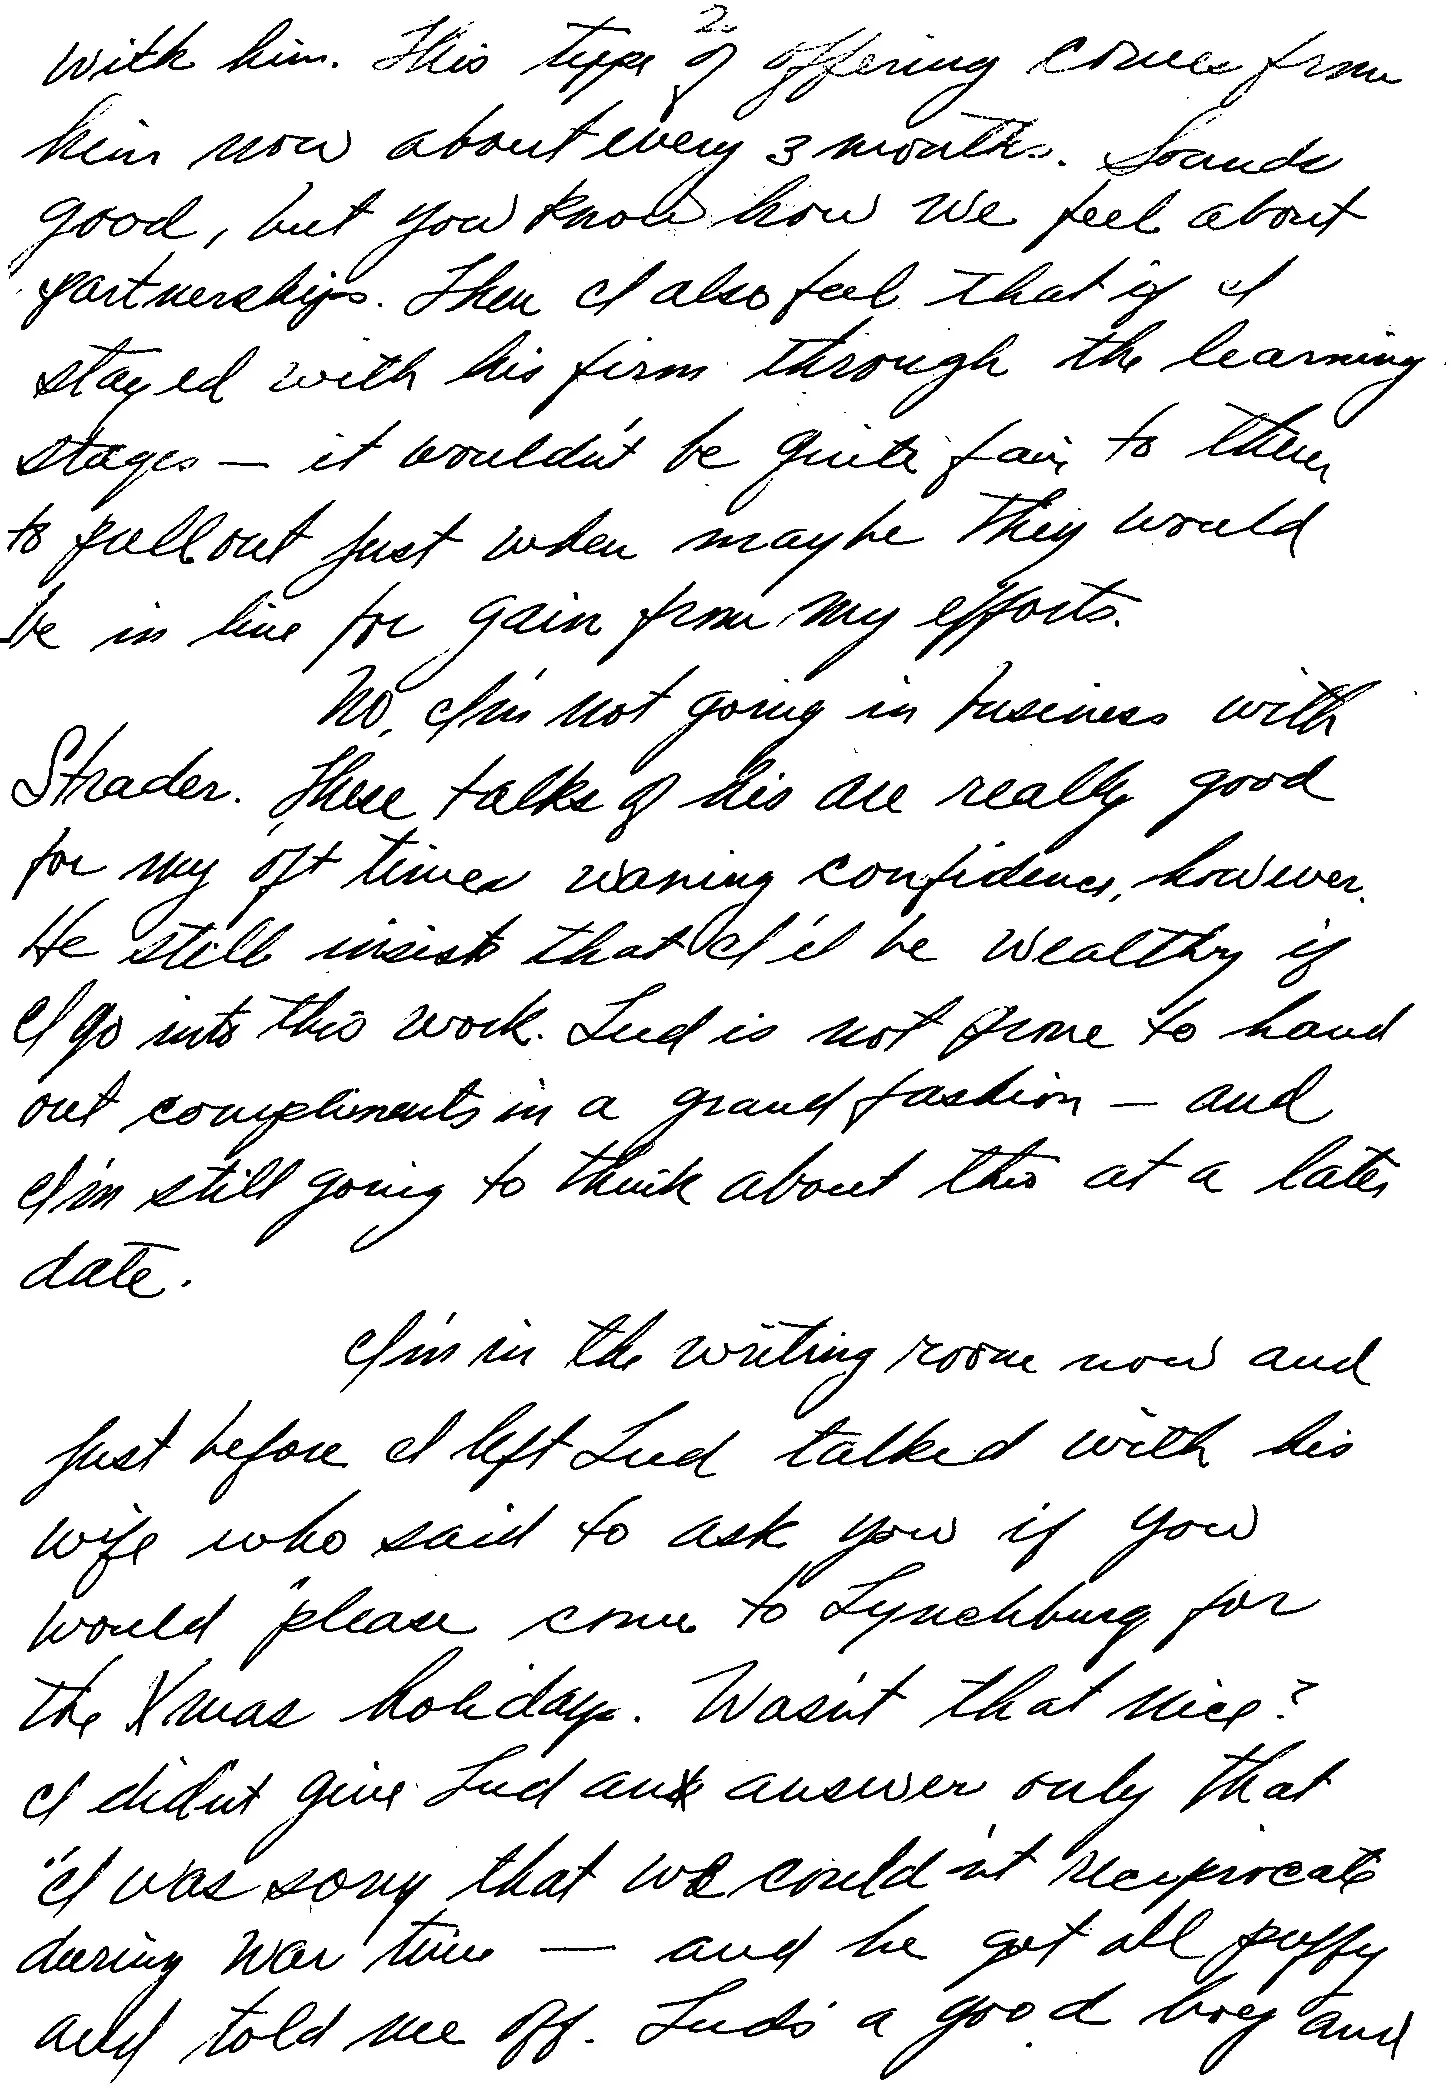 2.
with him. This type of offering comes from
him now about every 3 months. Sounds
good, but you know how we feel about
partnerships. Then I also feel that if I
stayed with his firm through the learning
stages — it wouldn't be quite fair to them
to pull out just when maybe they would
be in line for gain from my efforts.
No, I'm not going in business with
Strader. These talks of his are really good
for my oft times waning confidence, however.
He still insists that I'd be wealthy if
I go into this work. Lud is not prone to hand
out compliments in a grand fashion — and
I'm still going to think about this at a later
date.
I'm in the writing room now and
just before I left Lud talked with his
wife who said to ask you if you
would "please come to Lynchburg for
the Xmas holidays. Wasn't that nice?
I didn't give Lud an answer only that
"I was sorry that we couldn't reciprocate
during war time — and he got all puffy
and told me off. Lud's a good boy and